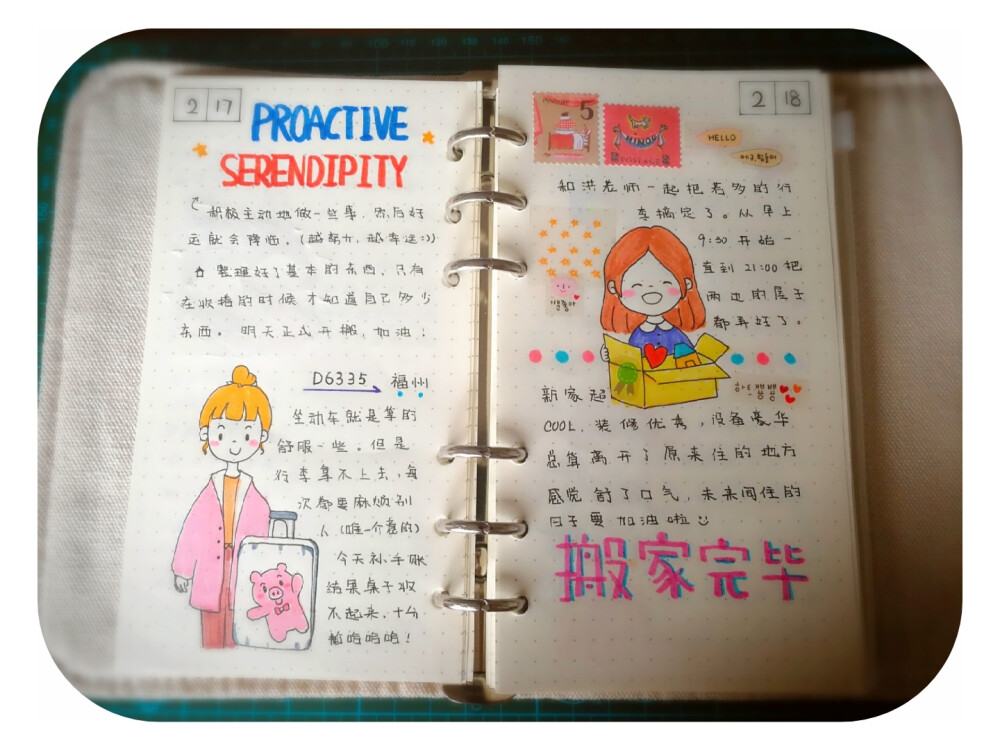 2 17
PROACTIVE
SERENDIPITY
积极主动地做一些事，然后好
运就会降临。(越努力，越幸运:))
整理好了基本的东西，只有
在收拾的时候才知道自己多少
东西。明天正式开搬，加油！
D6335 福州
坐动车就是拿的
舒服一些。但是
行李拿不上去，每
次都要麻烦别
人(唯一个意的)
今天补手账
结果桌子收
不起来，十分
尴呜呜呜！
2 18
5
HELLO
和洪老师一起把若多的行
李搞定了。从早上
9:30 开始一
直到 21:00 把
两边的屋子
都弄好了。
하트뿅뿅
新家超
COOL，装修优秀，设备豪华
总算离开了原来住的地方
感觉舒了口气，未来闽住的
日子要加油啦
搬家完毕